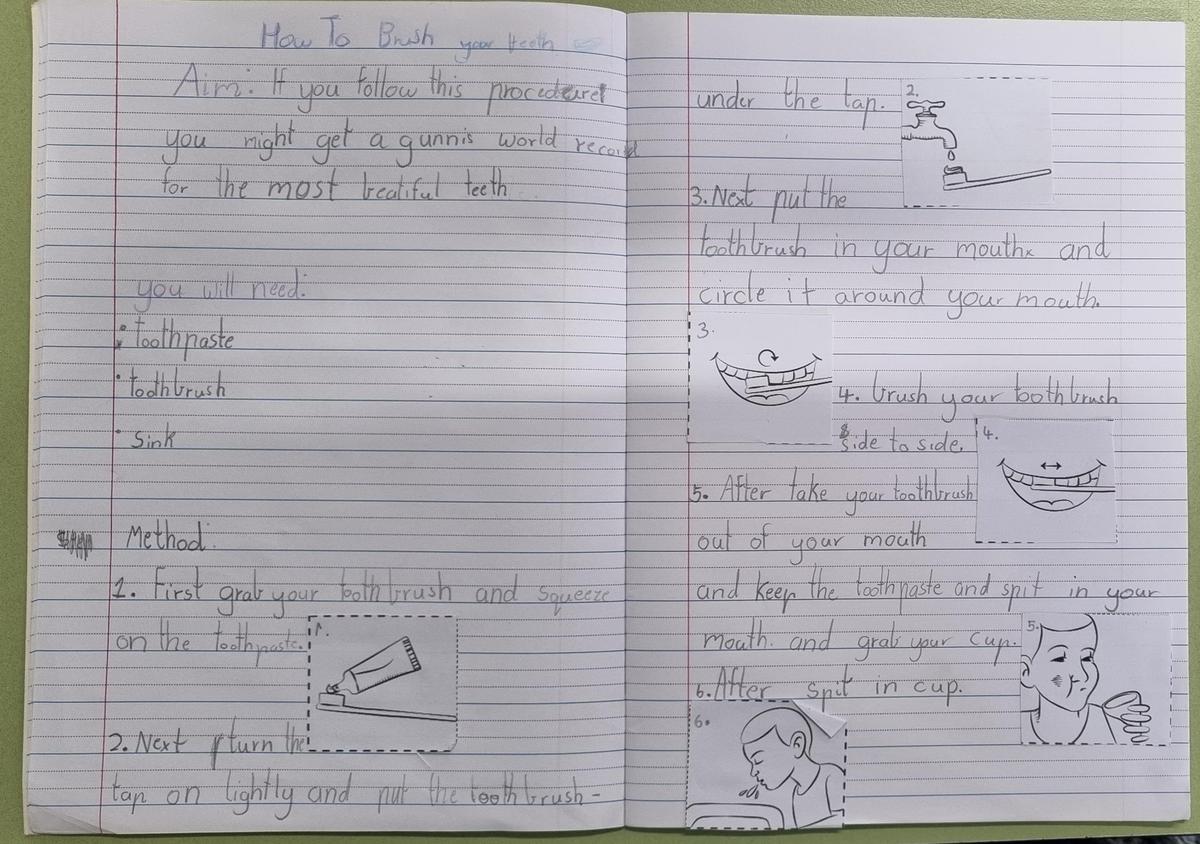 How To Brush your teeth
Aim: If you follow this procedure
you might get a gunnis world record
for the most beatiful teeth
you will need:
• toothpaste
• toothbrush
• sink
Method:
1. First grab your toothbrush and squeeze
on the toothpaste.
1.
2. Next turn the
tap on lightly and put the toothbrush-
under the tap.
2.
3. Next put the
toothbrush in your mouth and
circle it around your mouth.
3.
4. brush your toothbrush
side to side.
4.
5. After take your toothbrush
out of your mouth
and keep the toothpaste and spit in your
mouth. and grab your cup.
5.
6. After spit in cup.
6.